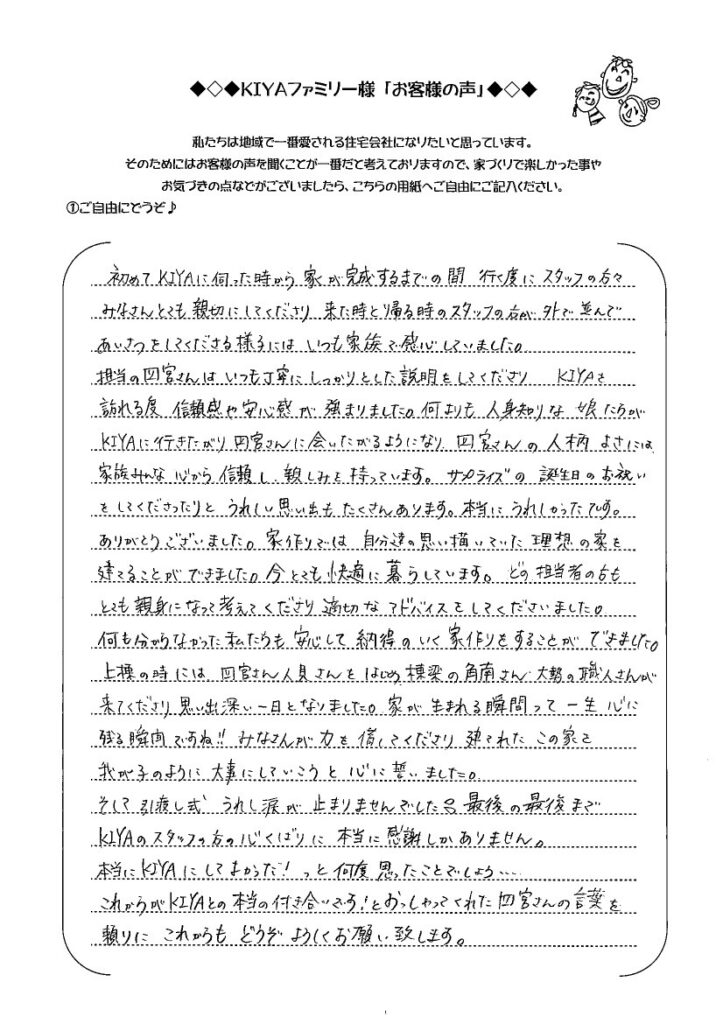 ◆◇◆KIYAファミリー様「お客様の声」◆◇◆
私たちは地域で一番愛される住宅会社になりたいと思っています。
そのためにはお客様の声を聞くことが一番だと考えておりますので、家づくりで楽しかった事や
お気づきの点などがございましたら、こちらの用紙へご自由にご記入ください。
①ご自由にどうぞ♪
初めてKIYAに伺った時から 家が完成するまでの間 行く度に スタッフの方々
みなさんとても 親切にしてくださり 来た時と帰る時のスタッフの方が 外で 並んで
あいさつをしてくださる様子には いつも家族で感心していました。
担当の四宮さんは いつも丁寧に しっかりとした 説明をしてくださり KIYAを
訪れる度 信頼感や安心感が 強まりました。何よりも 人身知りな 娘たちが
KIYAに行きたがり 四宮さんに会いたがるようになり 四宮さんの 人柄 よさには
家族みんな 心から 信頼し、親しみを 持っています。サプライズの 誕生日のお祝い
をしてくださったりと うれしい思い出も たくさんあります。本当に うれしかったです。
ありがとうございました。家作りでは 自分達の思い描いていた 理想の家を
建てることが できました。今とても 快適に 暮らしています。どの担当者の方も
とても親身になって考えてくださり 適切な アドバイスをしてくださいました。
何も分からなかった私たちも 安心して 納得のいく 家作りをすることが できました。
上棟の時には 四宮さん 人見さんをはじめ 棟梁の角南さん 大勢の職人さんが
来てくださり 思い出深い一日となりました。家が 生まれる瞬間って 一生 心に
残る瞬間ですね!! みなさんが 力を 借してくださり 建てれた この家を
我が子のように 大事にしていこうと 心に誓いました。
そして 引渡し式 うれし涙が 止まりませんでした 最後の最後まで
KIYAのスタッフの方の 心くばりに 本当に 感謝しかありません。
本当にKIYAにしてよかった! っと 何度 思ったことでしょう…
これからがKIYAとの本当の付き合いです!とおっしゃってくれた四宮さんの言葉を
頼りに これからも どうぞ よろしくお願い致します。